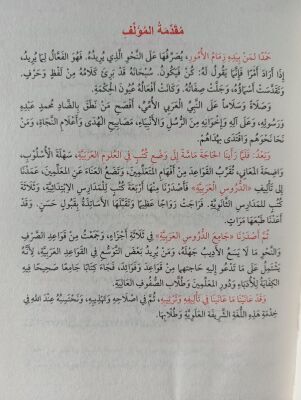 مُقَدِّمَةُ المُؤَلِّفِ
حَمْدًا لِمَنْ بِيَدِهِ زِمَامُ الأُمُورِ، يُصَرِّفُهَا عَلَى النَّحْوِ الَّذِي يُرِيدُهُ. فَهُوَ الفَعَّالُ لِمَا يُرِيدُ،
إِذَا أَرَادَ أَمْرًا فَإِنَّمَا يَقُولُ لَهُ: كُنْ فَيَكُونُ. سُبْحَانَهُ قَدْ بَرِئَ كَلَامُهُ مِنْ لَفْظٍ وَحَرْفٍ.
وَتَقَدَّسَتْ أَسْمَاؤُهُ، وَجَلَّتْ صِفَاتُهُ. وَكَانَتْ أَفْعَالُهُ عُيُونَ الحِكْمَةِ.
وَصَلَاةً وَسَلَامًا عَلَى النَّبِيِّ العَرَبِيِّ الأُمِّيِّ، أَفْصَحِ مَنْ نَطَقَ بِالضَّادِ مُحَمَّدٍ عَبْدِهِ
وَرَسُولِهِ، وَعَلَى آلِهِ وَإِخْوَانِهِ مِنَ الرُّسُلِ وَالأَنْبِيَاءِ، مَصَابِيحِ الهُدَى وَأَعْلَامِ النَّجَاةِ، وَمَنْ
نَحَا نَحْوَهُمْ وَاقْتَدَى بِهُدَاهُمْ.
وَبَعْدُ: فَلَمَّا رَأَيْنَا الحَاجَةَ مَاسَّةً إِلَى وَضْعِ كُتُبٍ فِي العُلُومِ العَرَبِيَّةِ، سَهْلَةِ الأُسْلُوبِ،
وَاضِحَةِ المَعَانِي، تُقَرِّبُ القَوَاعِدَ مِنْ أَفْهَامِ المُتَعَلِّمِينَ، وَتَضَعُ العَنَاءَ عَنِ المُعَلِّمِينَ، عَمَدْنَا
إِلَى تَأْلِيفِ «الدُّرُوسِ العَرَبِيَّةِ» فَأَصْدَرْنَا مِنْهَا أَرْبَعَةَ كُتُبٍ لِلْمَدَارِسِ الِابْتِدَائِيَّةِ، وَثَلَاثَةَ
كُتُبٍ لِلْمَدَارِسِ الثَّانَوِيَّةِ. فَرَاجَتْ رَوَاجًا عَظِيمًا وَتَقَبَّلَهَا الأَسَاتِذَةُ بِقَبُولٍ حَسَنٍ. وَقَدْ
أَعَدْنَا طَبْعَهَا مَرَّاتٍ.
ثُمَّ أَصْدَرْنَا «جَامِعَ الدُّرُوسِ العَرَبِيَّةِ» فِي ثَلَاثَةِ أَجْزَاءٍ، وَجَمَعْتُ مِنْ قَوَاعِدِ الصَّرْفِ
وَالنَّحْوِ مَا لَا يَسَعُ الأَدِيبَ جَهْلُهُ، وَمَنْ يُرِيدُ بَعْضَ التَّوَسُّعِ فِي القَوَاعِدِ العَرَبِيَّةِ، لِأَنَّهُ
يَشْتَمِلُ عَلَى مَا تَدْعُو إِلَيْهِ حَاجَتُهُمَا مِنْ قَوَاعِدَ وَفَوَائِدَ، فَجَاءَ كِتَابًا جَامِعًا صَحِيحًا فِيهِ
الكِفَايَةُ لِلْأُدَبَاءِ وَدُورِ المُعَلِّمِينَ وَطُلَّابِ الصُّفُوفِ العَالِيَةِ.
وَقَدْ عَانَيْنَا مَا عَانَيْنَا فِي تَأْلِيفِهِ وَتَرْتِيبِهِ، ثُمَّ فِي إِصْلَاحِهِ وَتَهْذِيبِهِ، وَنَحْتَسِبُهُ عِنْدَ اللهِ فِي
خِدْمَةِ هَذِهِ اللُّغَةِ الشَّرِيفَةِ العَلَوِيَّةِ وَطُلَّابِهَا.